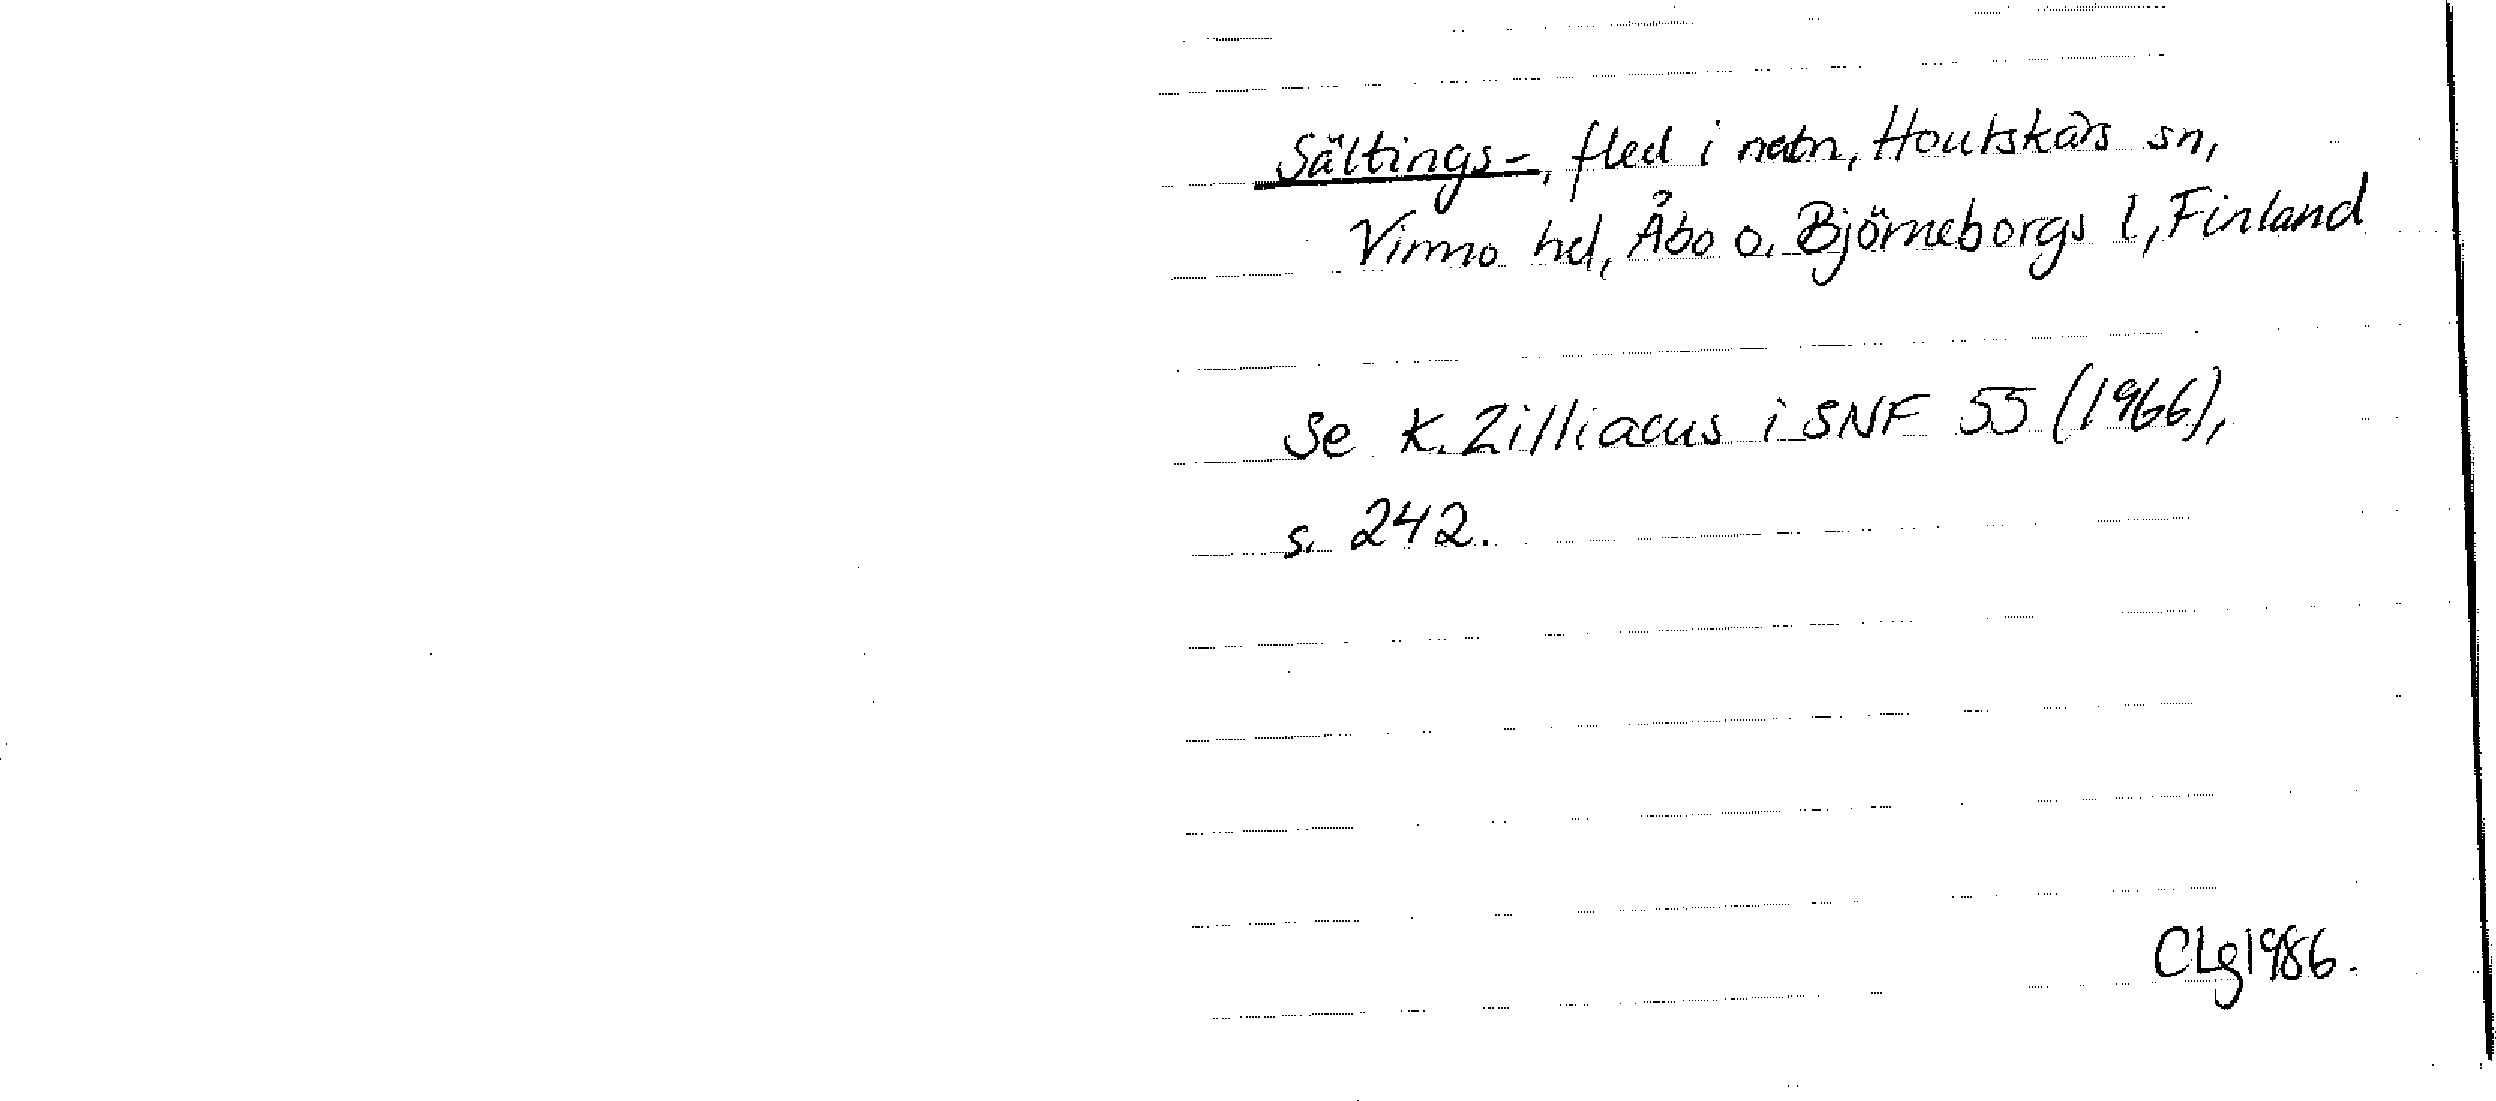 Sältings-, fled i natn, Houtskärs sn,
Virmo hd, Åbo o. Björneborgs l, Finland
Se K. Zilliacus i SNF 55 (1966),
s. 242.
CLg 1986.